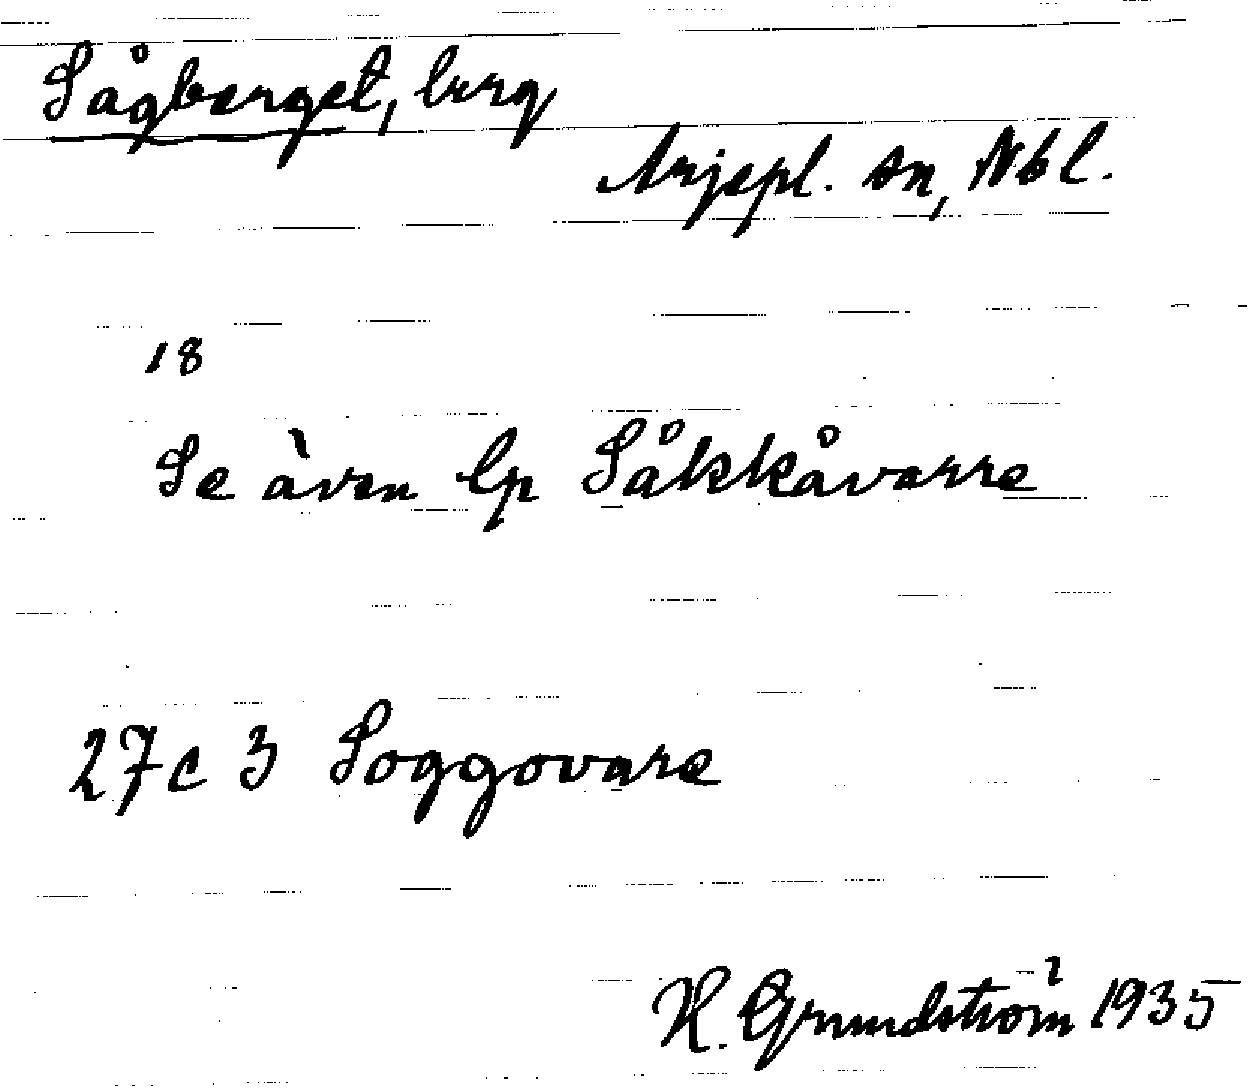 Sågberget, berg
Arjepl. sn, Nbl.
18
Se även lp Såkkåvarre
27c 3 Soggovare
H. Grundström 1935